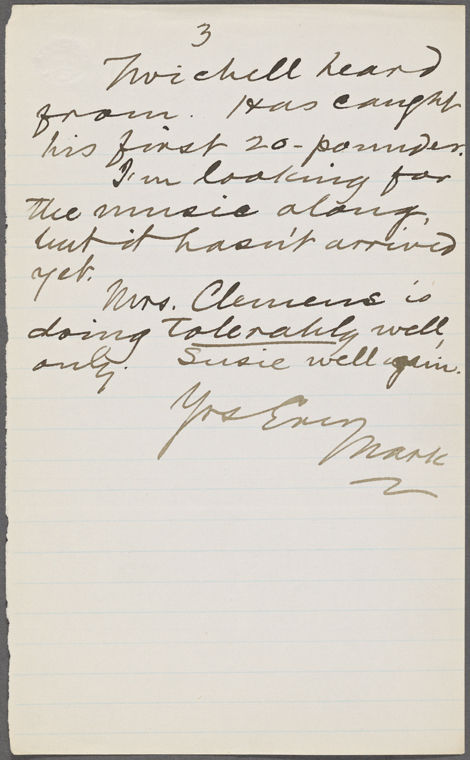 3
Twichell heard
from. Has caught
his first 20-pounder.
I'm looking for
the music along,
but it hasn't arrived
yet.
Mrs. Clemens is
doing tolerably well,
only. Susie well again.
Yrs Ever
Mark